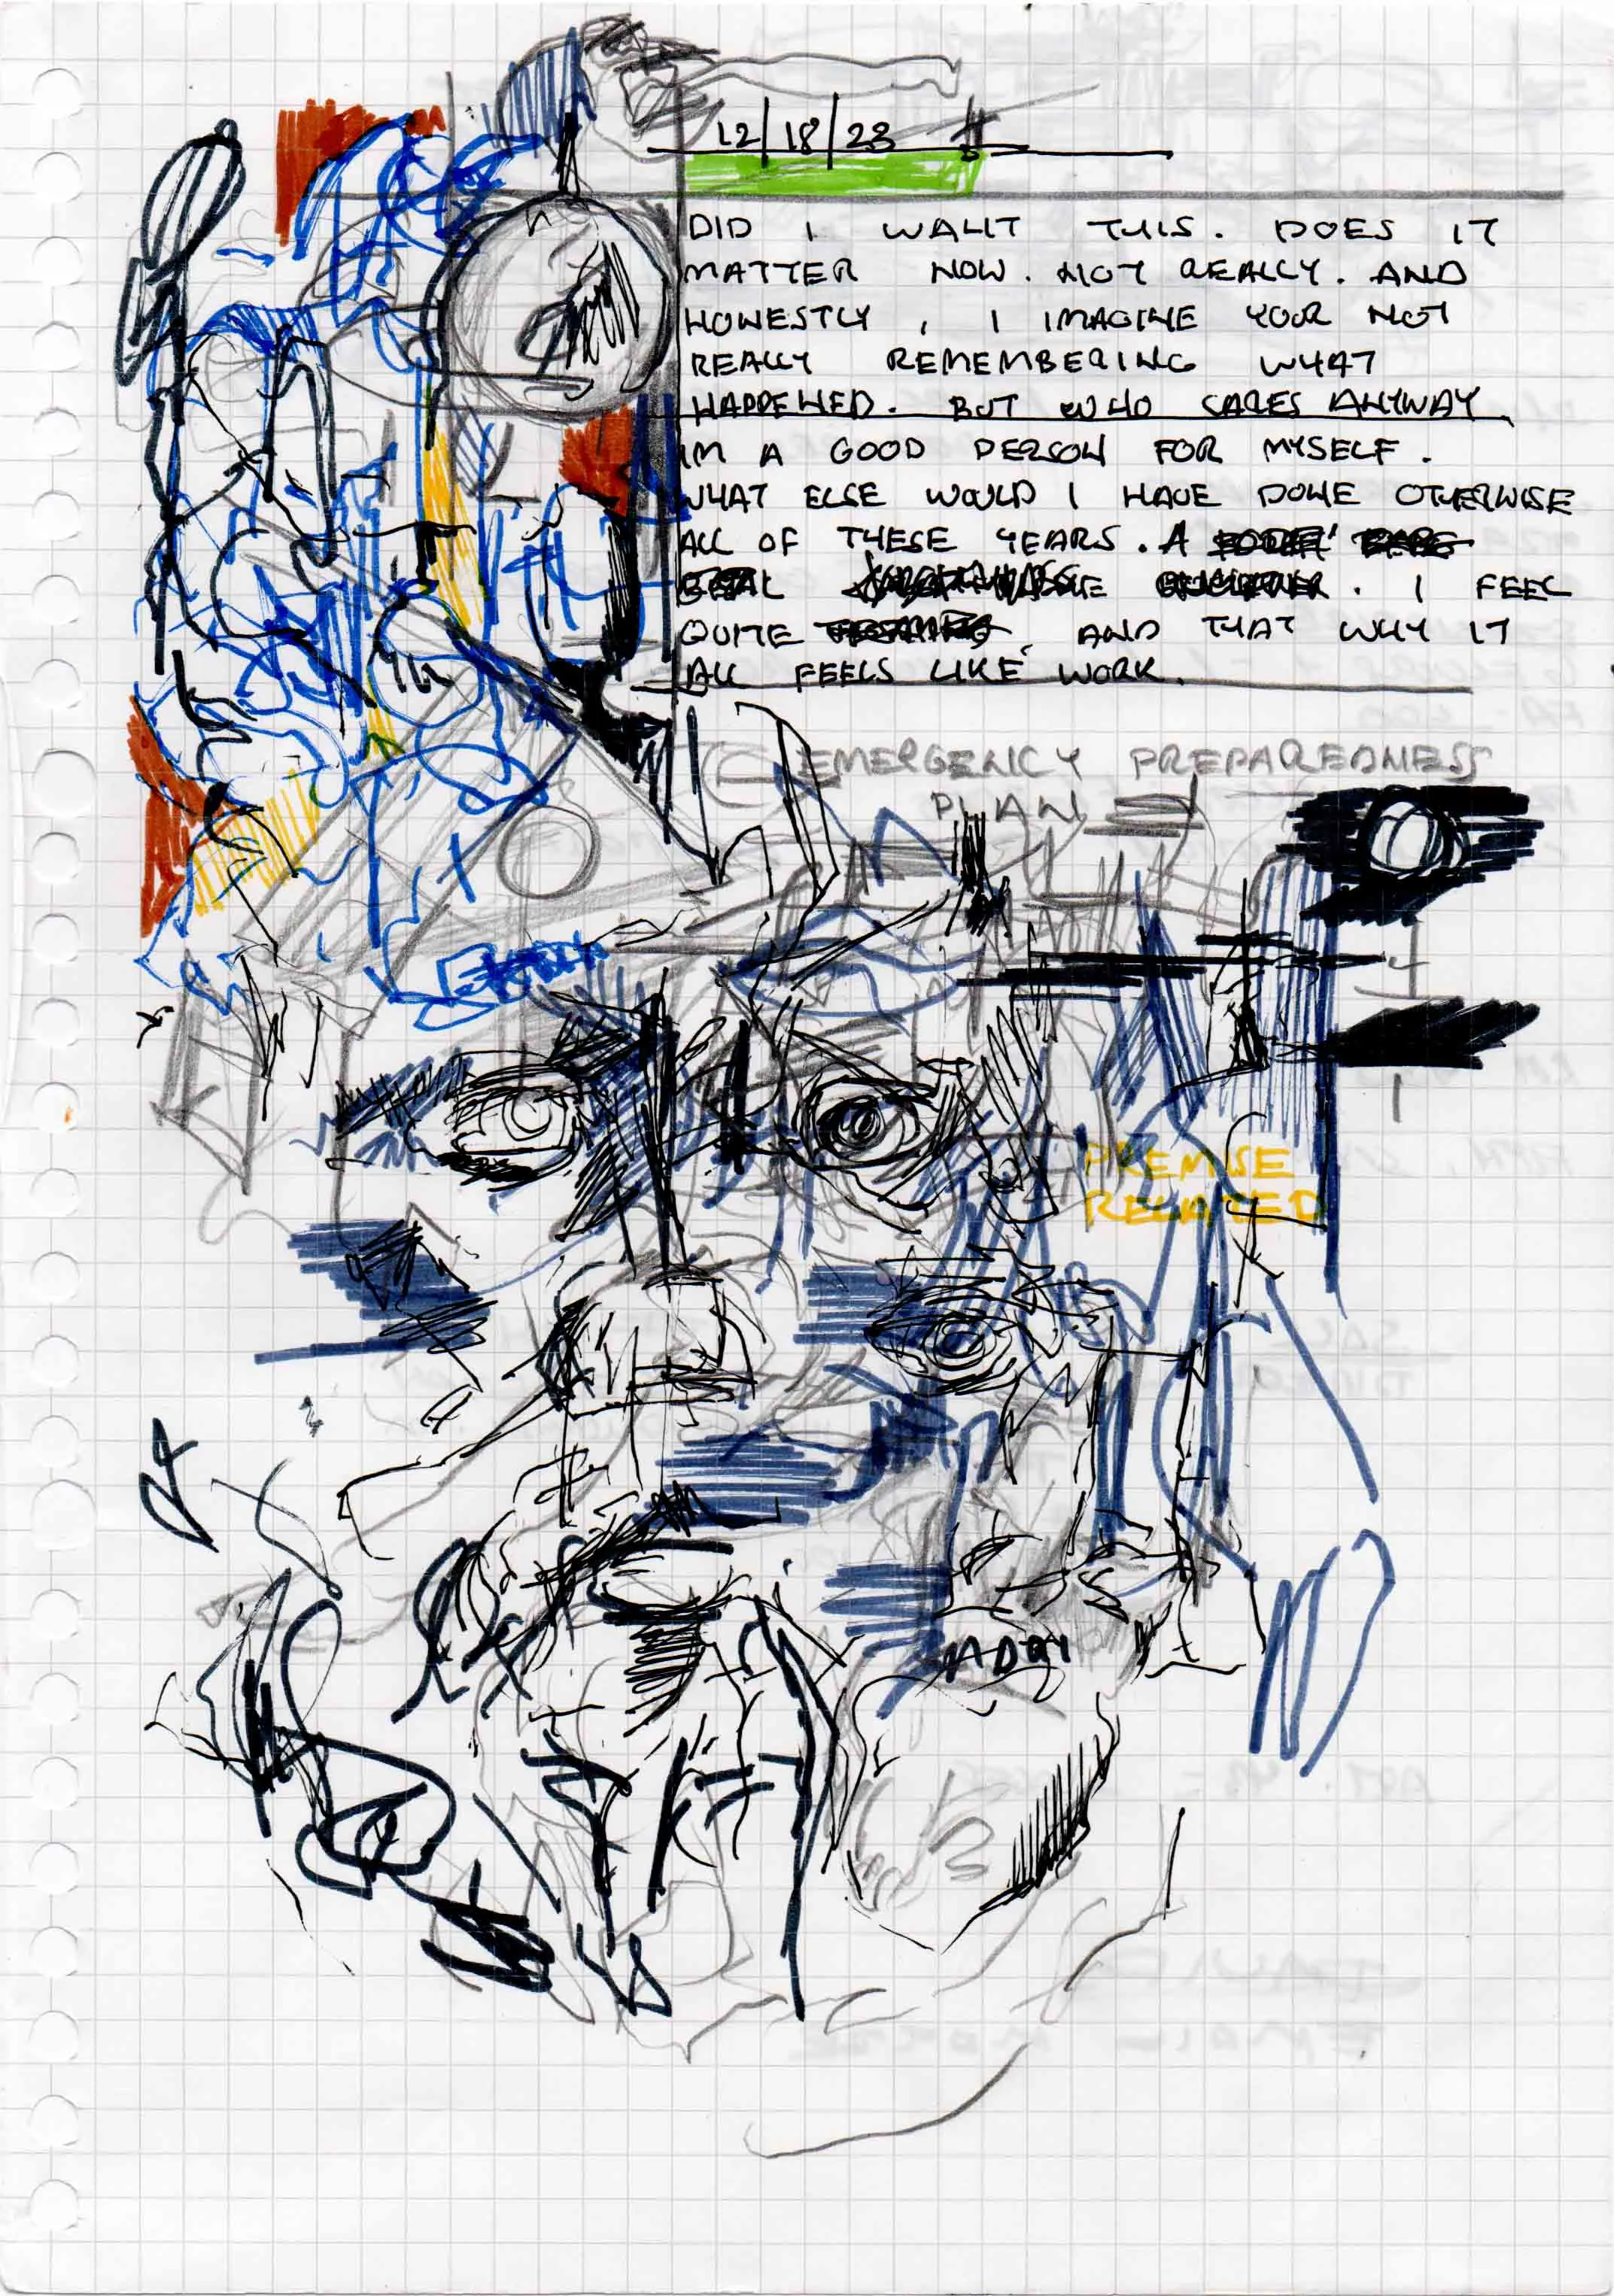 12/18/23
DID I WANT THIS. DOES IT
MATTER NOW. NOT REALLY. AND
HONESTLY, I IMAGINE YOUR NOT
REALLY REMEMBERING WHAT
HAPPENED. BUT WHO CARES ANYWAY
IM A GOOD PERSON FOR MYSELF.
WHAT ELSE WOULD I HAVE DONE OTHERWISE
ALL OF THESE YEARS. A
I FEEL
QUITE AND THAT WHY IT
ALL FEELS LIKE WORK.
EMERGENCY PREPAREDNESS
PLAN
PREMISE
RELATED